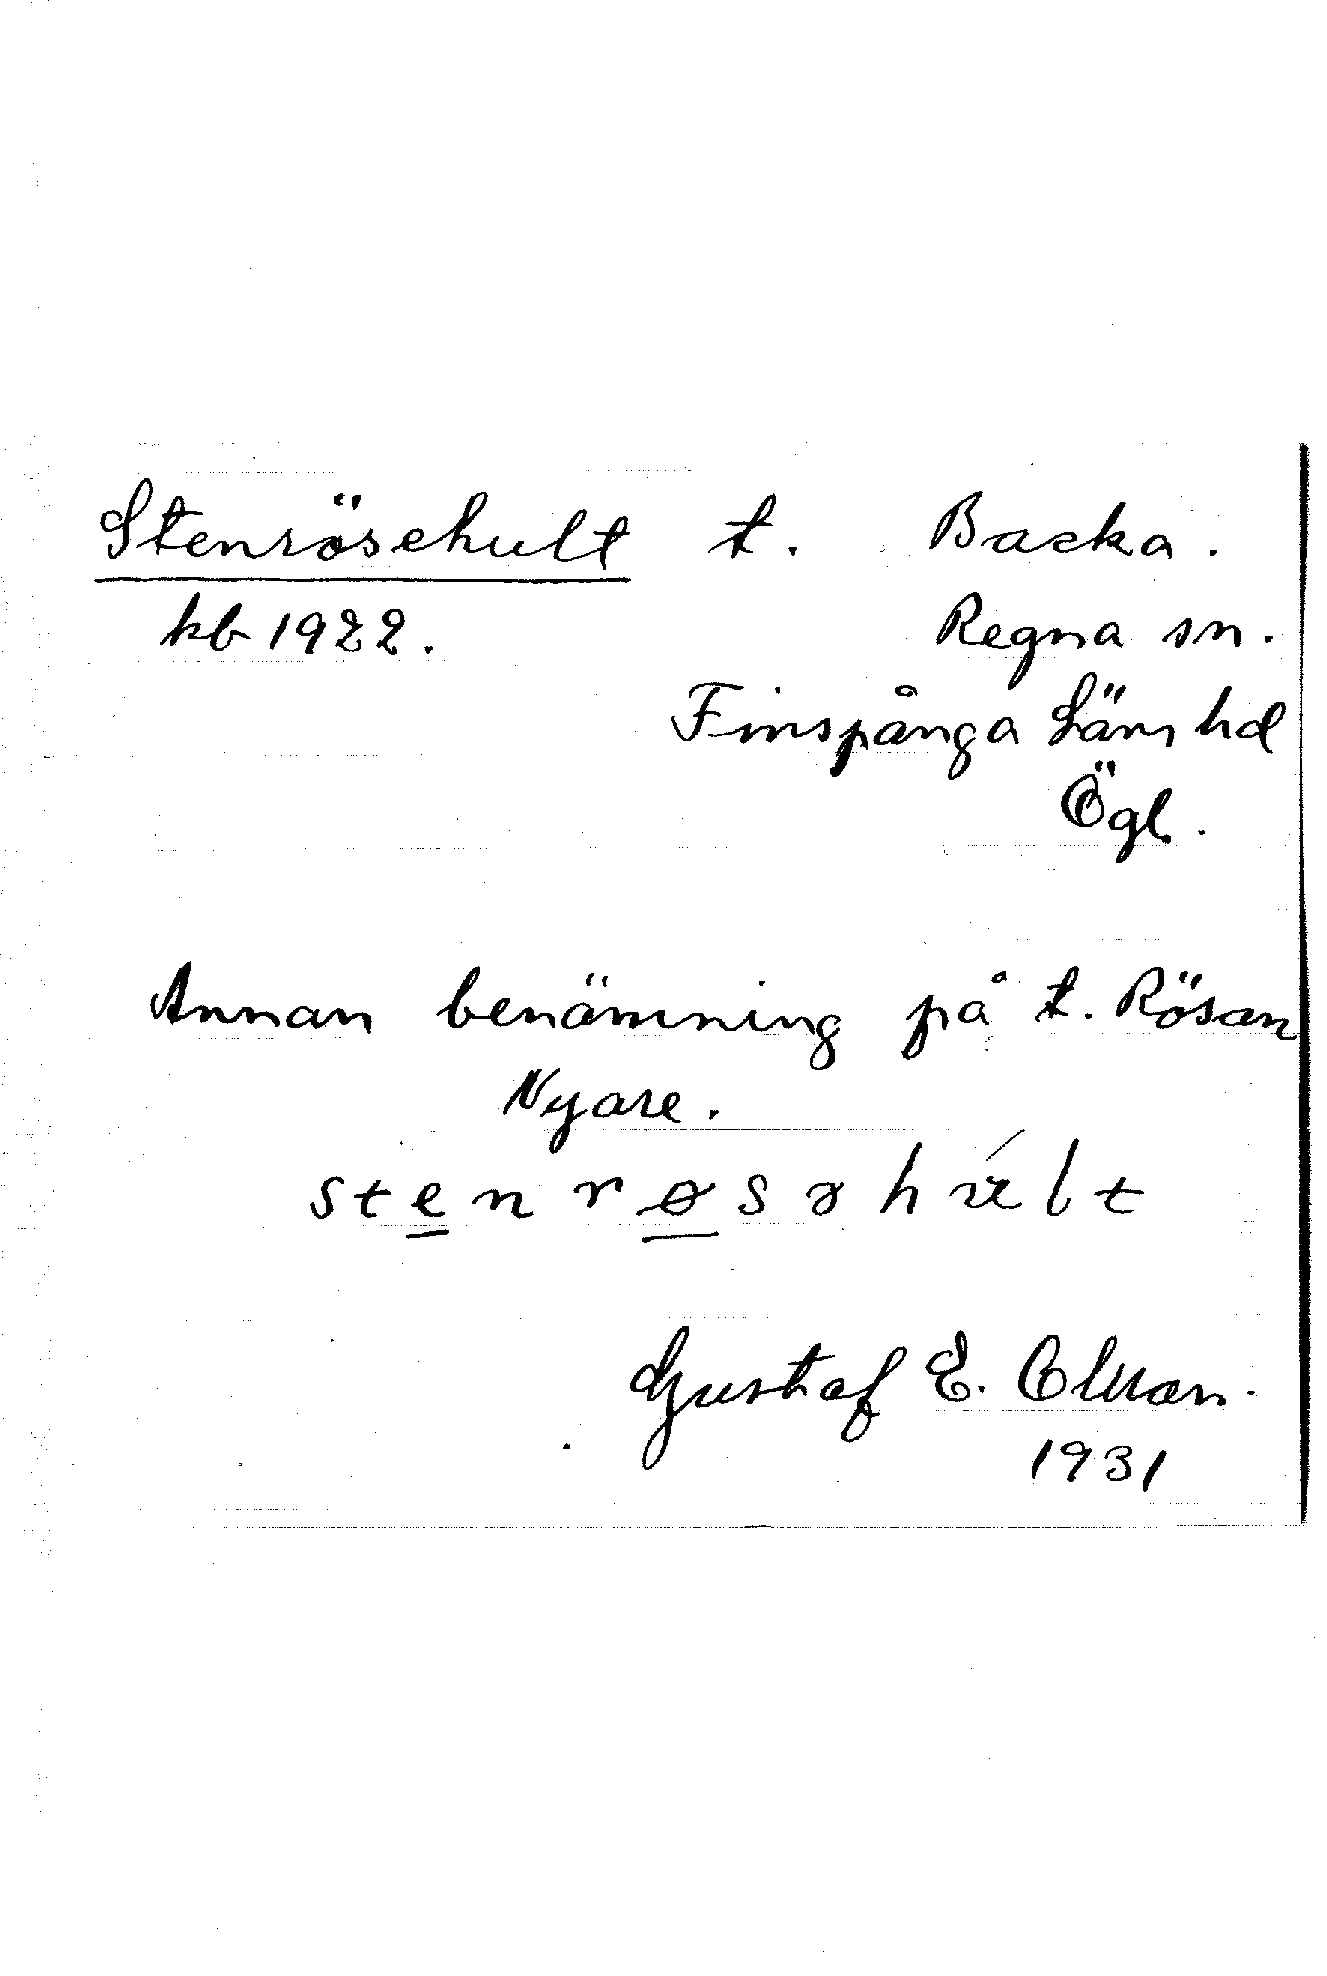 Stenrösehult t. Backa.
kb 1922. Regna sn.
Finspånga Läns hd
Ögl.
Annan benämning på t. Rösan
Nyare.
Gustaf E.
1931